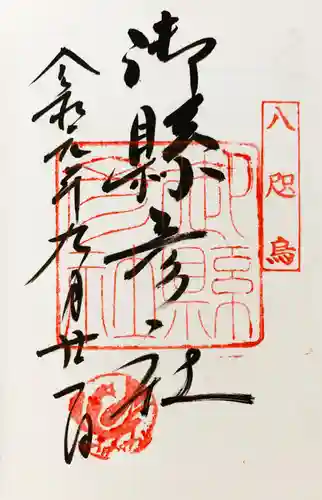 八咫烏
御縣彦社
令和元年九月廿一日
御縣
彦社